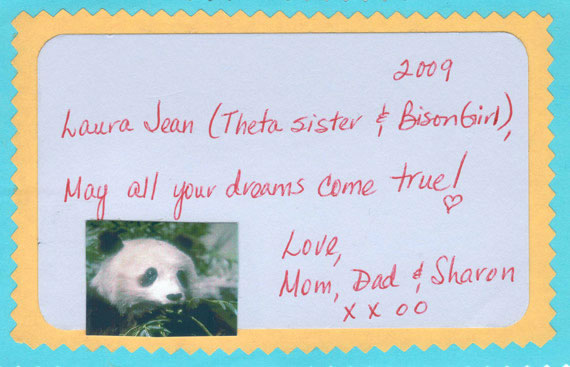 2009
Laura Jean (Theta sister & BisonGirl),
May all your dreams come true!
Love,
Mom, Dad & Sharon
x x o o